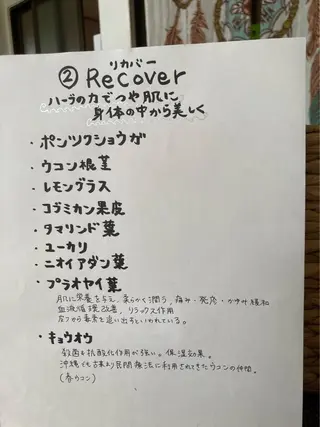 リカバー
② Recover
ハーブの力でつや肌に
身体の中から美しく
・ポンツクショウガ
・ウコン根茎
・レモングラス
・コブミカン果皮
・タマリンド葉
・ユーカリ
・ニオイアダン葉
・プラオヤイ葉
肌に栄養を与え、柔らかく潤う、痛み・死疹・かゆみ緩和
血液循環改善、リラックス作用
皮フから毒素を追い出すといわれている。
・キョウオウ
殺菌と抗酸化作用が強い。保温効果。
沖縄でも古来より民間療法に利用されてきたウコンの仲間。
(春ウコン)